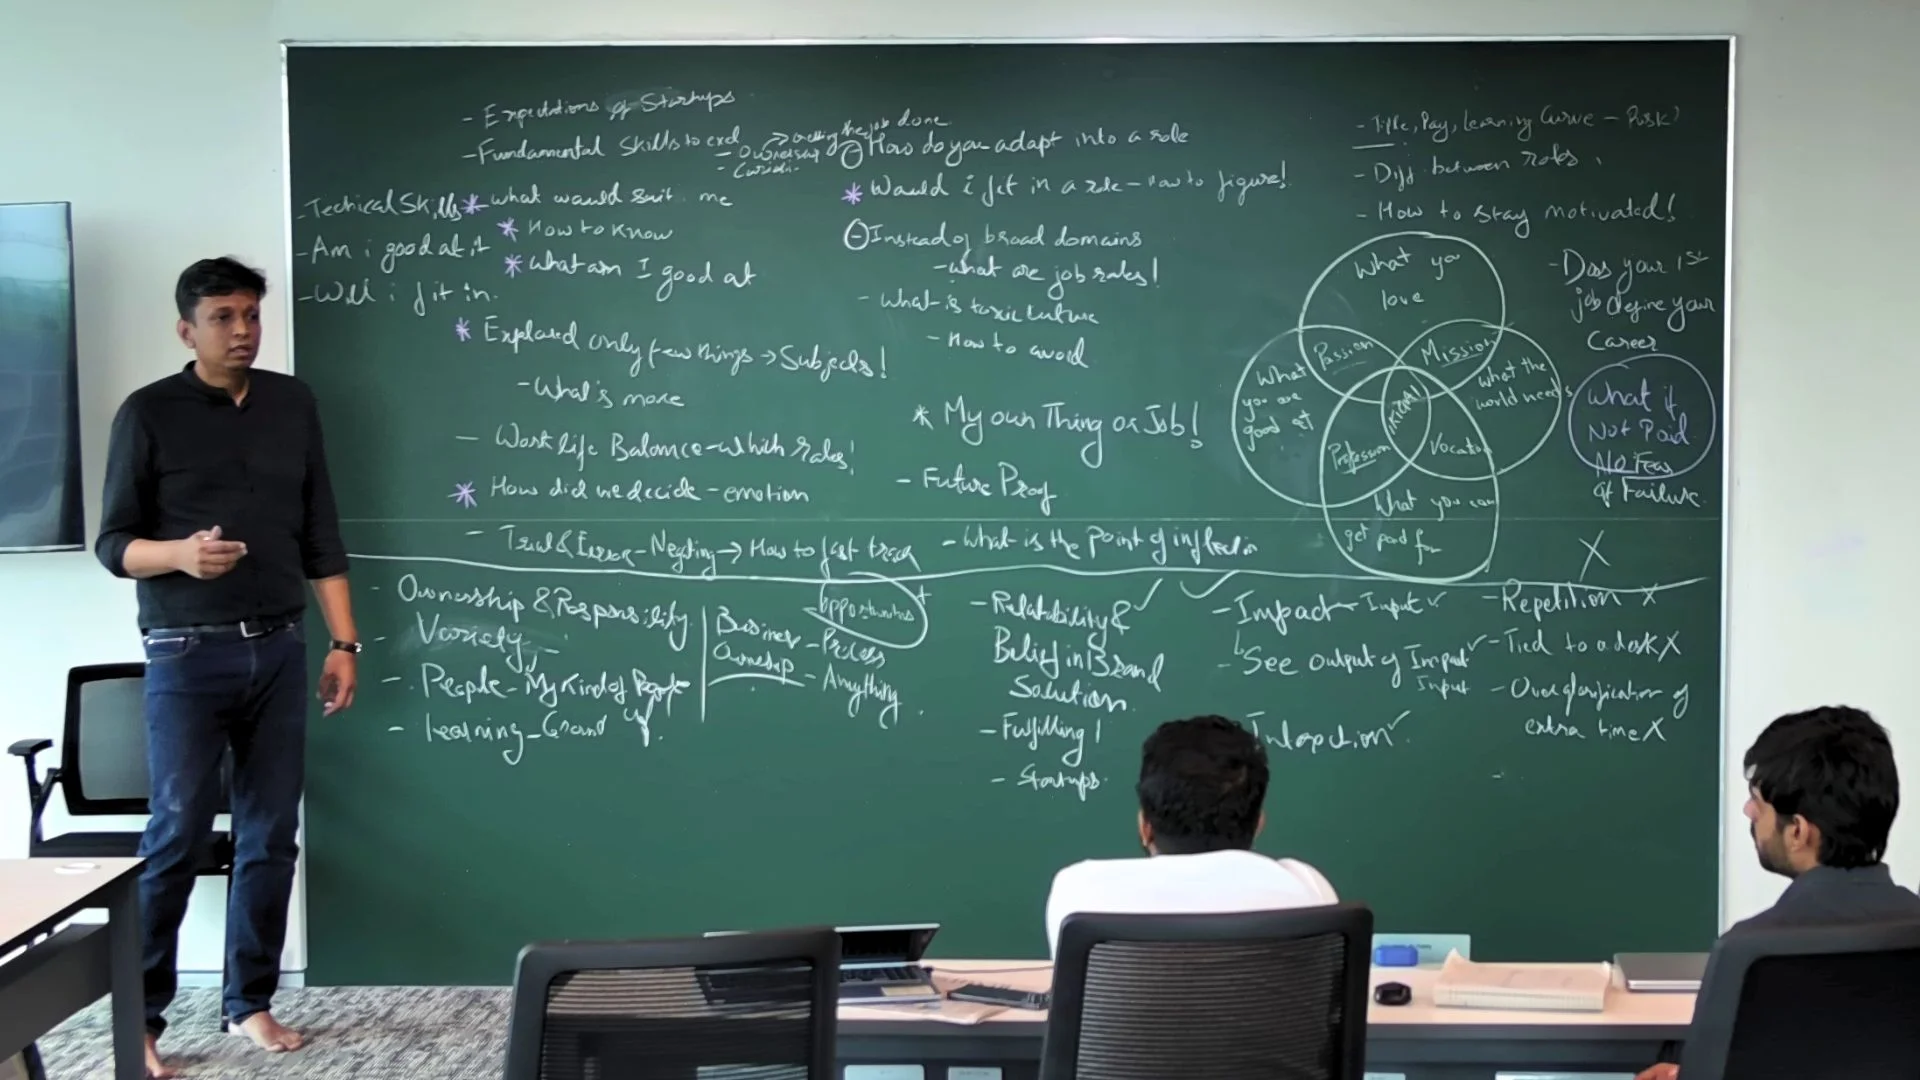 - Expectations of Startups
- Fundamental Skills to excl
→ Getting the job done
- Ownership
- Technical Skills
- Am i good at it
- Will i fit in.
* what would suit me
* How to know
* what am I good at
* Explored only few things → Subjects!
- What's more
- Work life Balance - which roles!
* How did we decide - emotion
- Trial & Error - Negting → How to fast track
- How do you adapt into a role
* Would i fit in a role - how to figure!
- Instead of broad domains
- what are job roles!
- what is toxic culture
- How to avoid
* My own Thing or Job!
- Future Proof
- what is the point of inflection
- Title, Pay, Learning Curve - Risk)
- Diff between roles
- How to stay motivated!
What you
love
Passion
Mission
What
you are
good at
what the
world needs
IKIGAI
Profession
Vocation
What you can
get paid for
- Does your 1st
job define your
Career
What if
Not Paid
No Fear
of Failure.
X
- Ownership & Responsibility
- Variety
- People - My Kind of People
- Learning - Grand
Business
Ownership
Opportunities +
- Process
- Anything
- Relatability & ✓
Belief in Brand
Solution
- Fulfilling !
- Startups
✓
- Impact - Input ✓
- See output of Input ✓
Input
Interaction ✓
- Repetition X
- Tied to a desk X
- Over glorification of
extra time X
-